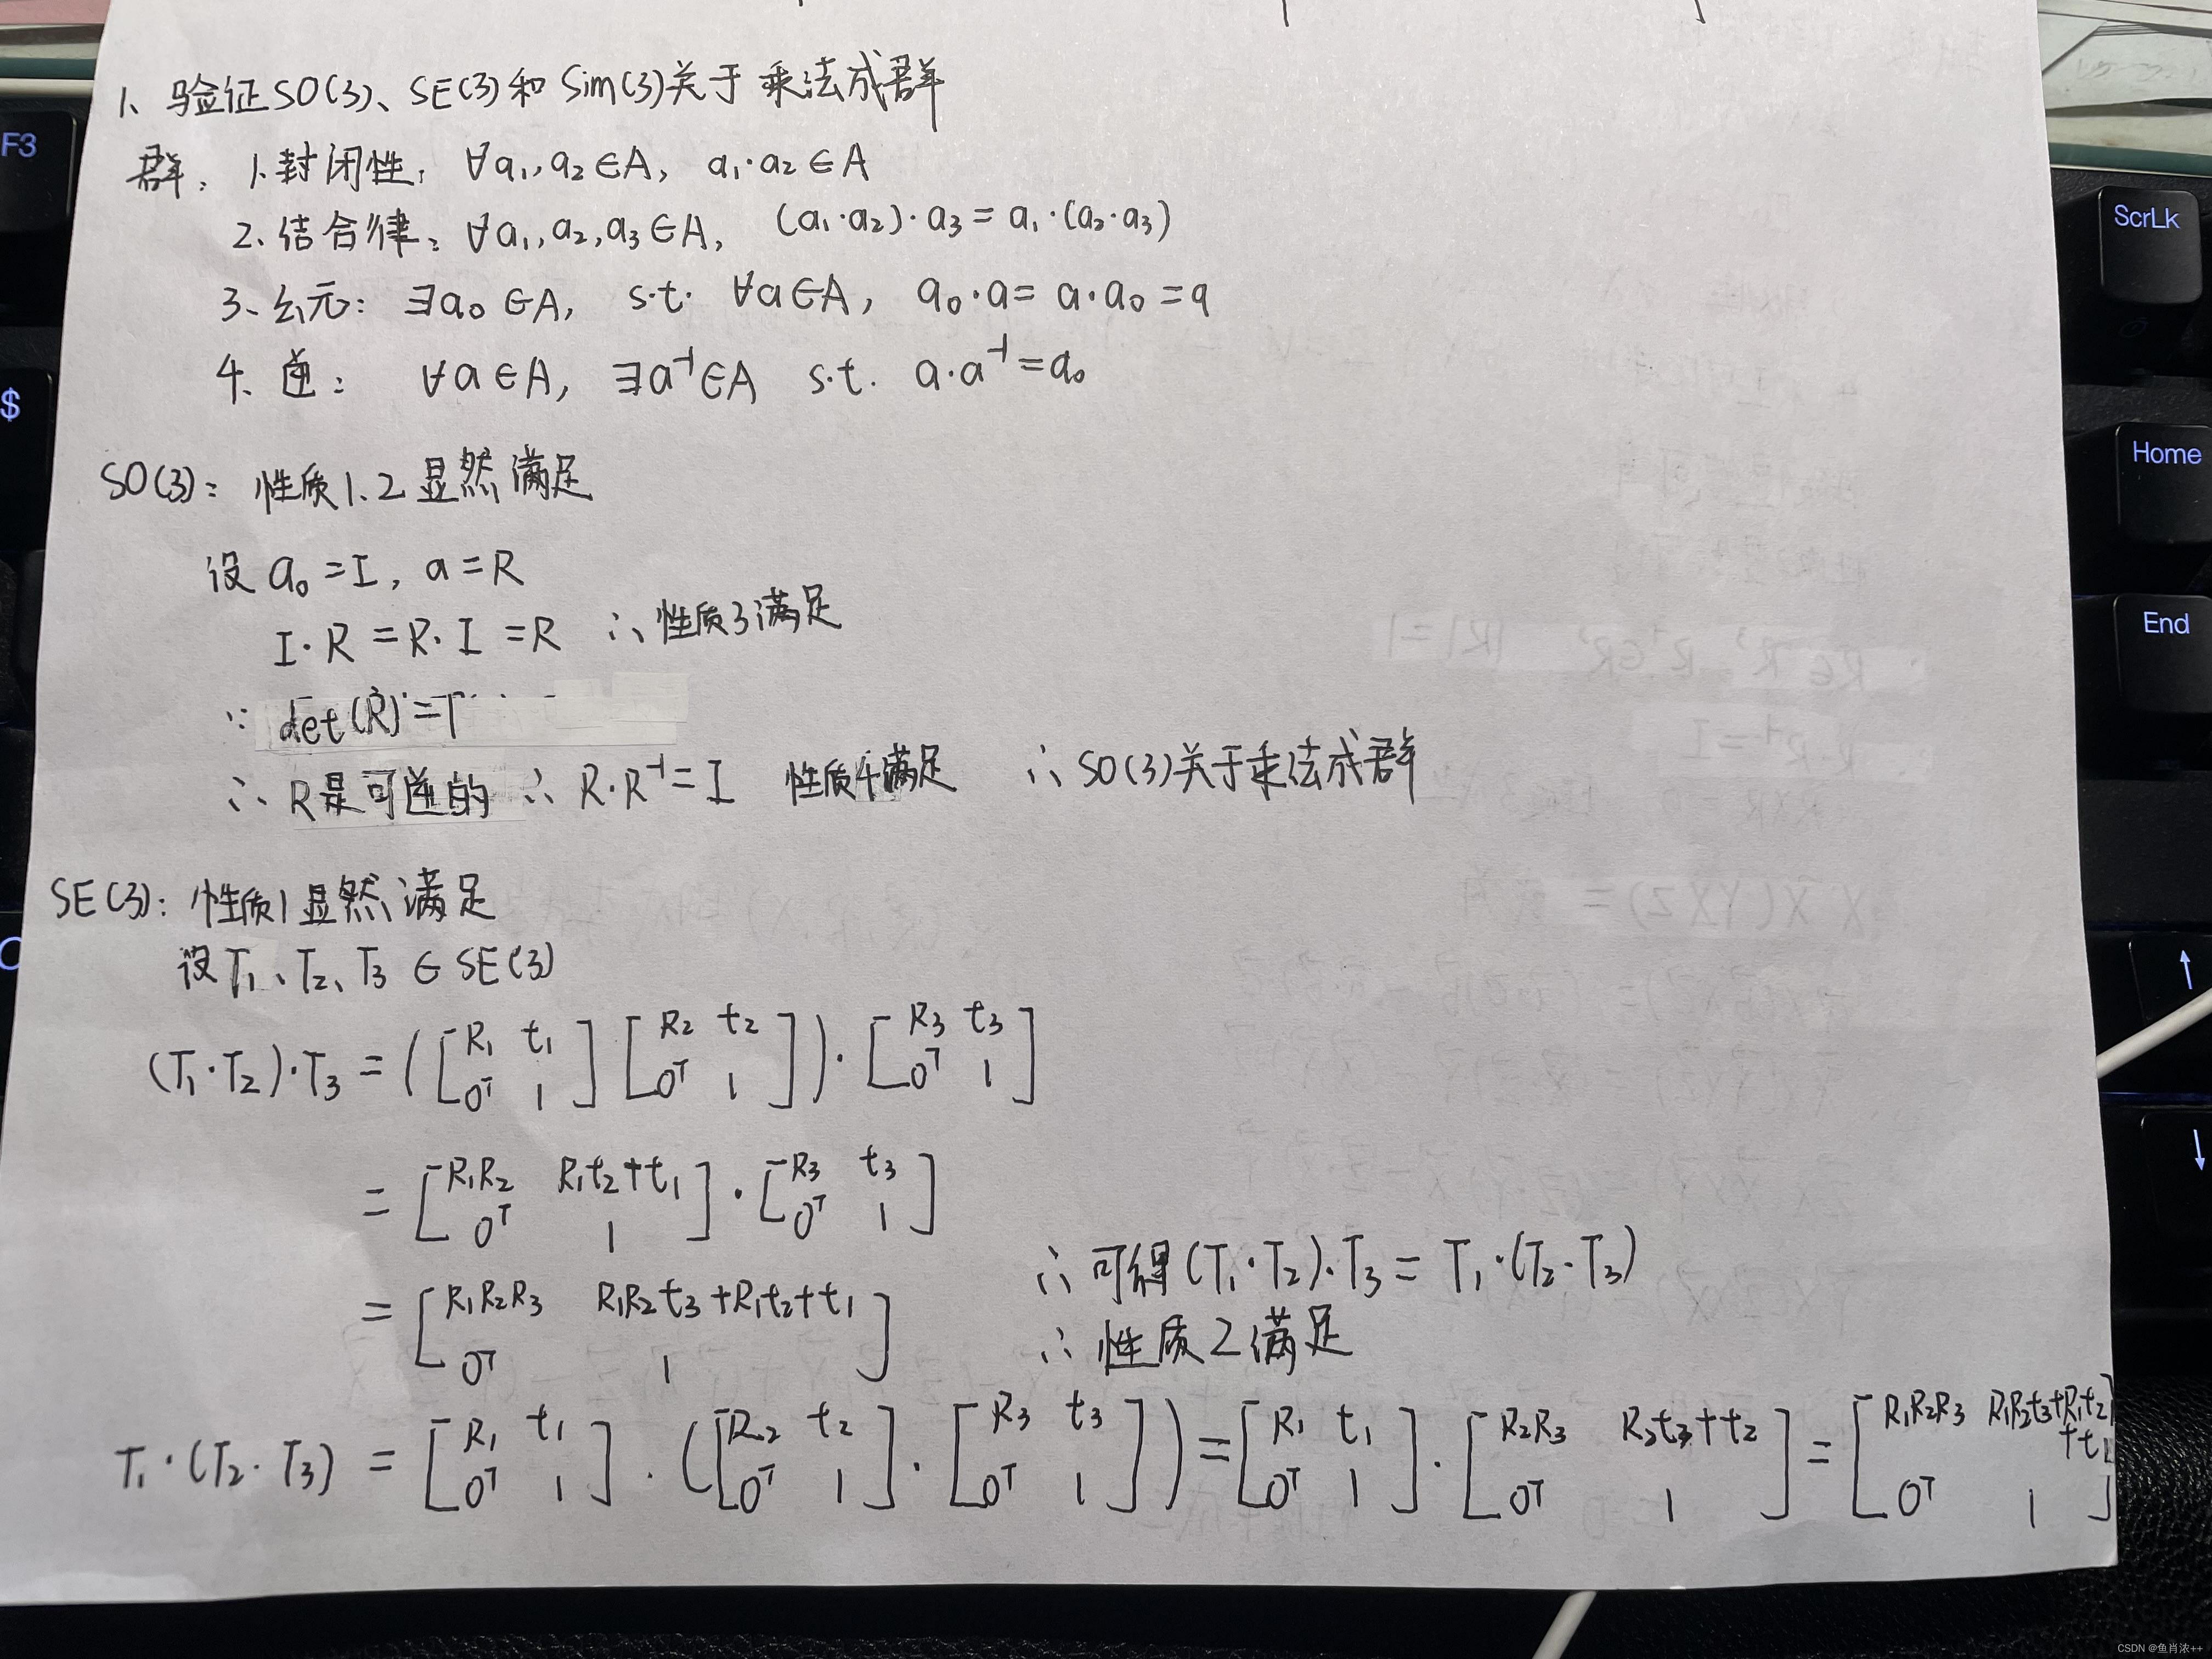 1、验证SO(3)、SE(3)和Sim(3)关于乘法成群
群: 1.封闭性: ∀a₁,a₂∈A, a₁·a₂∈A
2.结合律: ∀a₁,a₂,a₃∈A, (a₁·a₂)·a₃=a₁·(a₂·a₃)
3.幺元: ∃a₀∈A, s.t. ∀a∈A, a₀·a=a·a₀=a
4.逆: ∀a∈A, ∃a⁻¹∈A s.t. a·a⁻¹=a₀
SO(3): 性质1.2显然满足
设a₀=I, a=R
I·R=R·I=R ∴性质3满足
∵ det(R)=1
∴ R是可逆的 ∴ R·R⁻¹=I 性质4满足 ∴ SO(3)关于乘法成群
SE(3): 性质1显然满足
设T₁、T₂、T₃∈SE(3)
(T₁·T₂)·T₃=([R₁ t₁; 0ᵀ 1][R₂ t₂; 0ᵀ 1])·[R₃ t₃; 0ᵀ 1]
=[R₁R₂ R₁t₂+t₁; 0ᵀ 1]·[R₃ t₃; 0ᵀ 1]
=[R₁R₂R₃ R₁R₂t₃+R₁t₂+t₁; 0ᵀ 1]
∴可得(T₁·T₂)·T₃=T₁·(T₂·T₃)
∴性质2满足
T₁·(T₂·T₃)=[R₁ t₁; 0ᵀ 1]·([R₂ t₂; 0ᵀ 1]·[R₃ t₃; 0ᵀ 1])=[R₁ t₁; 0ᵀ 1]·[R₂R₃ R₂t₃+t₂; 0ᵀ 1]=[R₁R₂R₃ R₁R₂t₃+R₁t₂+t₁; 0ᵀ 1]
F3
$
ScrLk
Home
End
↑
↓
CSDN @鱼肖浓++